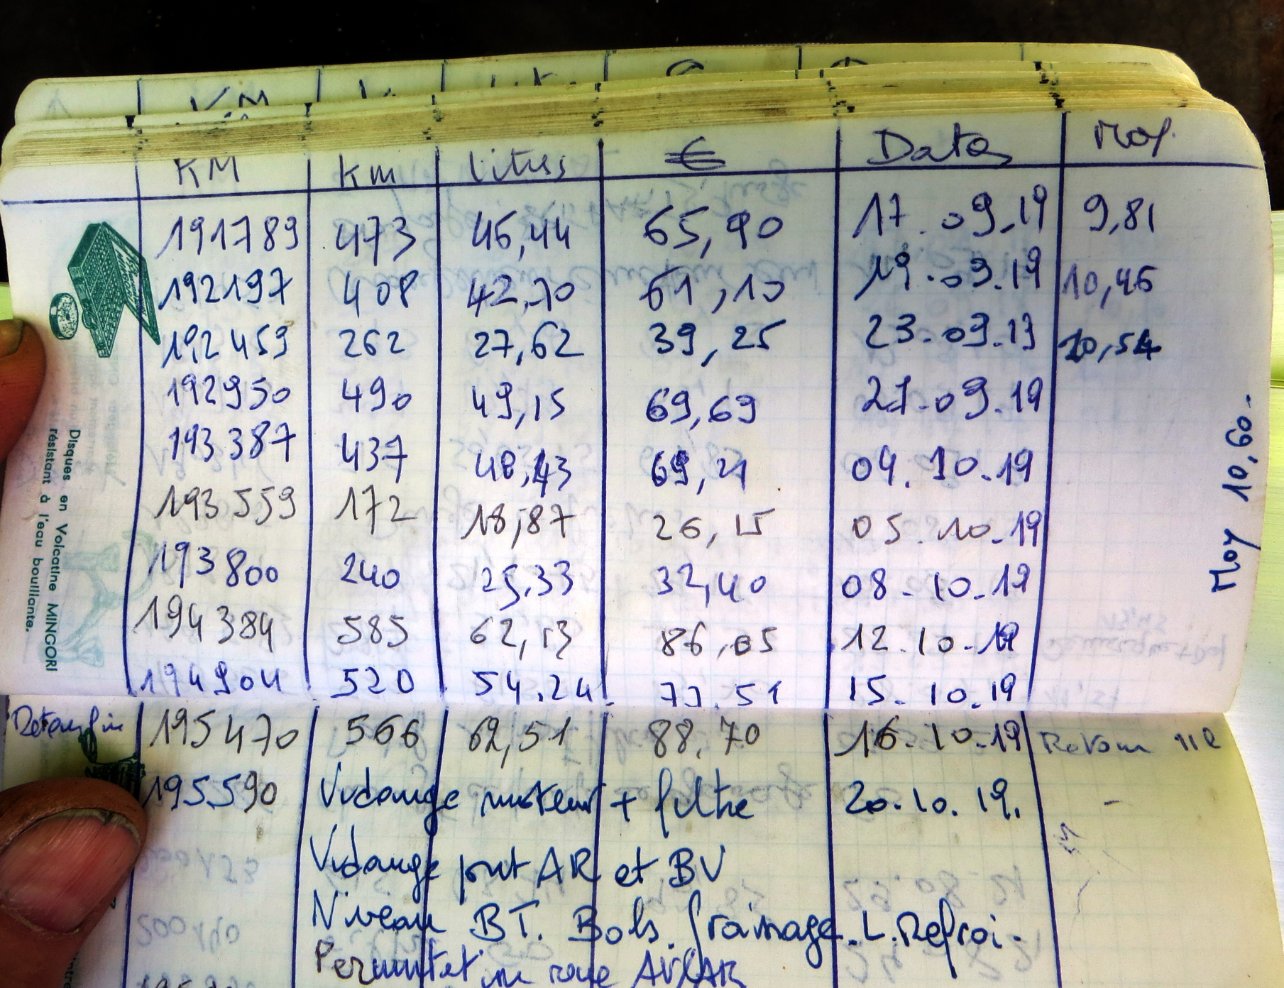 KM km litres € Dates Moy.
191789 473 46,44 65,90 17.09.19 9,81
192197 408 42,70 61,10 19.09.19 10,46
192459 262 27,62 39,25 23.09.19 10,54
192950 490 49,15 69,69 27.09.19
193387 437 48,43 69,21 04.10.19
193559 172 18,87 26,15 05.10.19
193800 240 25,33 32,40 08.10.19
194384 585 62,13 86,05 12.10.19
194904 520 54.24 77.51 15.10.19
Moy 10,60-
195470 566 62,51 88,70 16.10.19
195590 Vidange moteur + filtre 20.10.19. -
Vidange pont AR et BV
Niveau BT. Bols. Graissage. L.Refroi.
roue AV/AR
Disques en Volcatine MINGORI
résistant à l'eau bouillante.